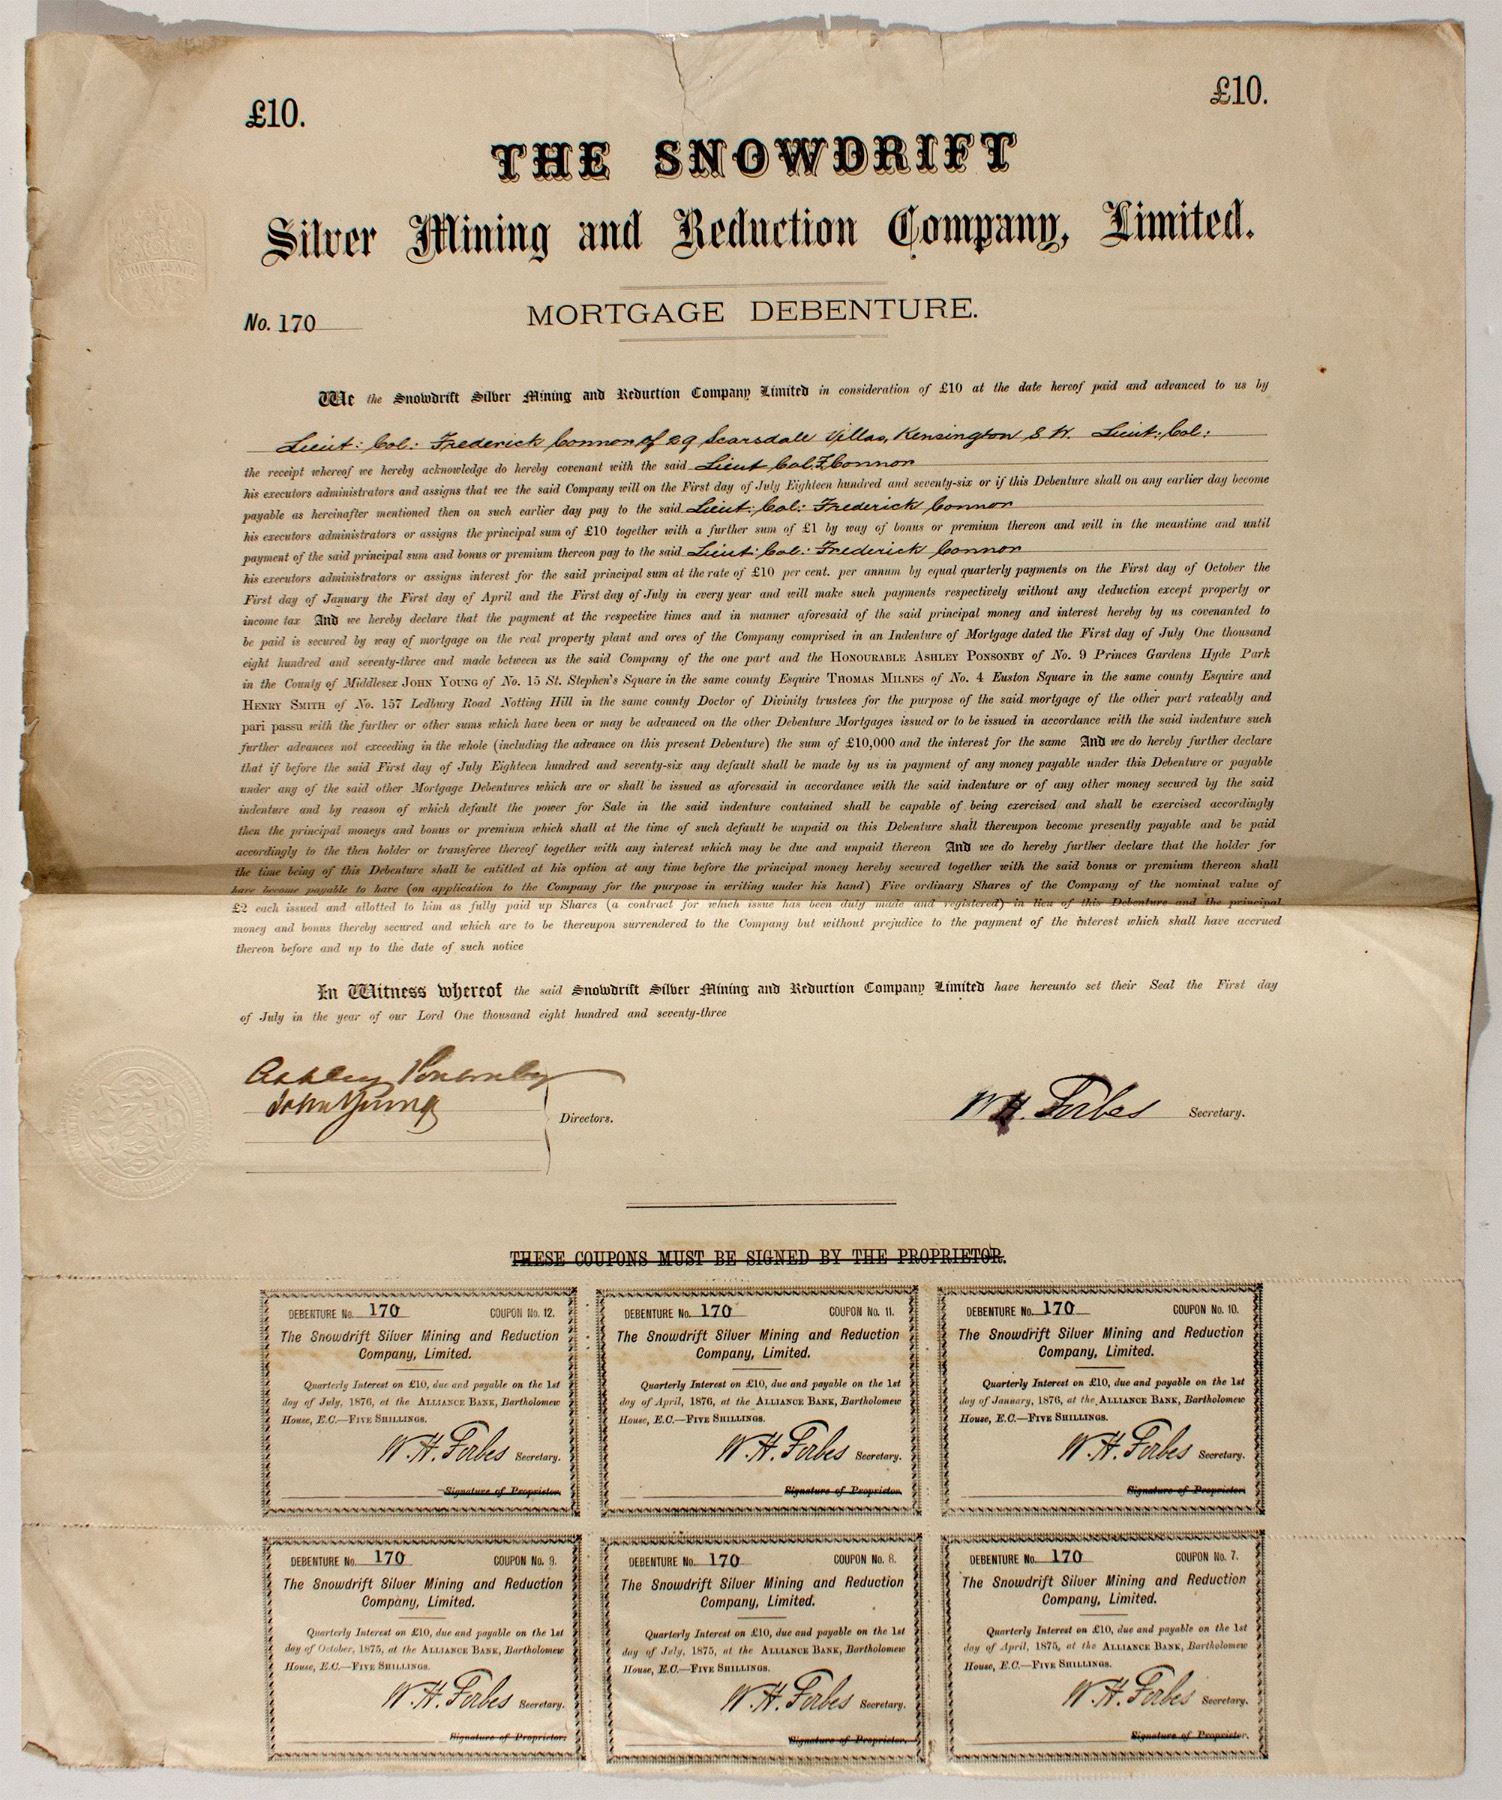 £10.
£10.
THE SNOWDRIFT
Silver Mining and Reduction Company, Limited.
No. 170
MORTGAGE DEBENTURE.
We the Snowdrift Silver Mining and Reduction Company Limited in consideration of £10 at the date hereof paid and advanced to us by
Lieut: Col: Frederick Connor of 29 Scarsdale Villas, Kensington S.W. Lieut: Col:
the receipt whereof we hereby acknowledge do hereby covenant with the said Lieut Col. F. Connor
his executors administrators and assigns that we the said Company will on the First day of July Eighteen hundred and seventy-six or if this Debenture shall on any earlier day become
payable as hereinafter mentioned then on such earlier day pay to the said Lieut: Col: Frederick Connor
his executors administrators or assigns the principal sum of £10 together with a further sum of £1 by way of bonus or premium thereon and will in the meantime and until
payment of the said principal sum and bonus or premium thereon pay to the said Lieut: Col: Frederick Connor
his executors administrators or assigns interest for the said principal sum at the rate of £10 per cent. per annum by equal quarterly payments on the First day of October the
First day of January the First day of April and the First day of July in every year and will make such payments respectively without any deduction except property or
income tax And we hereby declare that the payment at the respective times and in manner aforesaid of the said principal money and interest hereby by us covenanted to
be paid is secured by way of mortgage on the real property plant and ores of the Company comprised in an Indenture of Mortgage dated the First day of July One thousand
eight hundred and seventy-three and made between us the said Company of the one part and the HONOURABLE ASHLEY PONSONBY of No. 9 Princes Gardens Hyde Park
in the County of Middlesex JOHN YOUNG of No. 15 St. Stephen's Square in the same county Esquire THOMAS MILNES of No. 4 Euston Square in the same county Esquire and
HENRY SMITH of No. 157 Ledbury Road Notting Hill in the same county Doctor of Divinity trustees for the purpose of the said mortgage of the other part rateably and
pari passu with the further or other sums which have been or may be advanced on the other Debenture Mortgages issued or to be issued in accordance with the said indenture such
further advances not exceeding in the whole (including the advance on this present Debenture) the sum of £10,000 and the interest for the same And we do hereby further declare
that if before the said First day of July Eighteen hundred and seventy-six any default shall be made by us in payment of any money payable under this Debenture or payable
under any of the said other Mortgage Debentures which are or shall be issued as aforesaid in accordance with the said indenture or of any other money secured by the said
indenture and by reason of which default the power for Sale in the said indenture contained shall be capable of being exercised and shall be exercised accordingly
then the principal moneys and bonus or premium which shall at the time of such default be unpaid on this Debenture shall thereupon become presently payable and be paid
accordingly to the then holder or transferee thereof together with any interest which may be due and unpaid thereon And we do hereby further declare that the holder for
the time being of this Debenture shall be entitled at his option at any time before the principal money hereby secured together with the said bonus or premium thereon shall
have become payable to have (on application to the Company for the purpose in writing under his hand) Five ordinary Shares of the Company of the nominal value of
£2 each issued and allotted to him as fully paid up Shares (a contract for which issue has been duly made and registered) in lieu of this Debenture and the principal
money and bonus thereby secured and which are to be thereupon surrendered to the Company but without prejudice to the payment of the interest which shall have accrued
thereon before and up to the date of such notice
In Witness whereof the said Snowdrift Silver Mining and Reduction Company Limited have hereunto set their Seal the First day
of July in the year of our Lord One thousand eight hundred and seventy-three
Ashley Ponsonby
John Young
Directors.
W.H. Forbes Secretary.
THESE COUPONS MUST BE SIGNED BY THE PROPRIETOR.
DEBENTURE No. 170 COUPON No. 12.
The Snowdrift Silver Mining and Reduction
Company, Limited.
Quarterly Interest on £10, due and payable on the 1st
day of July, 1876, at the ALLIANCE BANK, Bartholomew
House, E.C.—FIVE SHILLINGS.
W. H. Forbes Secretary.
Signature of Proprietor.
DEBENTURE No. 170 COUPON No. 11.
The Snowdrift Silver Mining and Reduction
Company, Limited.
Quarterly Interest on £10, due and payable on the 1st
day of April, 1876, at the ALLIANCE BANK, Bartholomew
House, E.C.—FIVE SHILLINGS.
W. H. Forbes Secretary.
Signature of Proprietor.
DEBENTURE No. 170 COUPON No. 10.
The Snowdrift Silver Mining and Reduction
Company, Limited.
Quarterly Interest on £10, due and payable on the 1st
day of January, 1876, at the ALLIANCE BANK, Bartholomew
House, E.C.—FIVE SHILLINGS.
W. H. Forbes Secretary.
Signature of Proprietor.
DEBENTURE No. 170 COUPON No. 9.
The Snowdrift Silver Mining and Reduction
Company, Limited.
Quarterly Interest on £10, due and payable on the 1st
day of October, 1875, at the ALLIANCE BANK, Bartholomew
House, E.C.—FIVE SHILLINGS.
W. H. Forbes Secretary.
Signature of Proprietor.
DEBENTURE No. 170 COUPON No. 8.
The Snowdrift Silver Mining and Reduction
Company, Limited.
Quarterly Interest on £10, due and payable on the 1st
day of July, 1875, at the ALLIANCE BANK, Bartholomew
House, E.C.—FIVE SHILLINGS.
W. H. Forbes Secretary.
Signature of Proprietor.
DEBENTURE No. 170 COUPON No. 7.
The Snowdrift Silver Mining and Reduction
Company, Limited.
Quarterly Interest on £10, due and payable on the 1st
day of April, 1875, at the ALLIANCE BANK, Bartholomew
House, E.C.—FIVE SHILLINGS.
W. H. Forbes Secretary.
Signature of Proprietor.